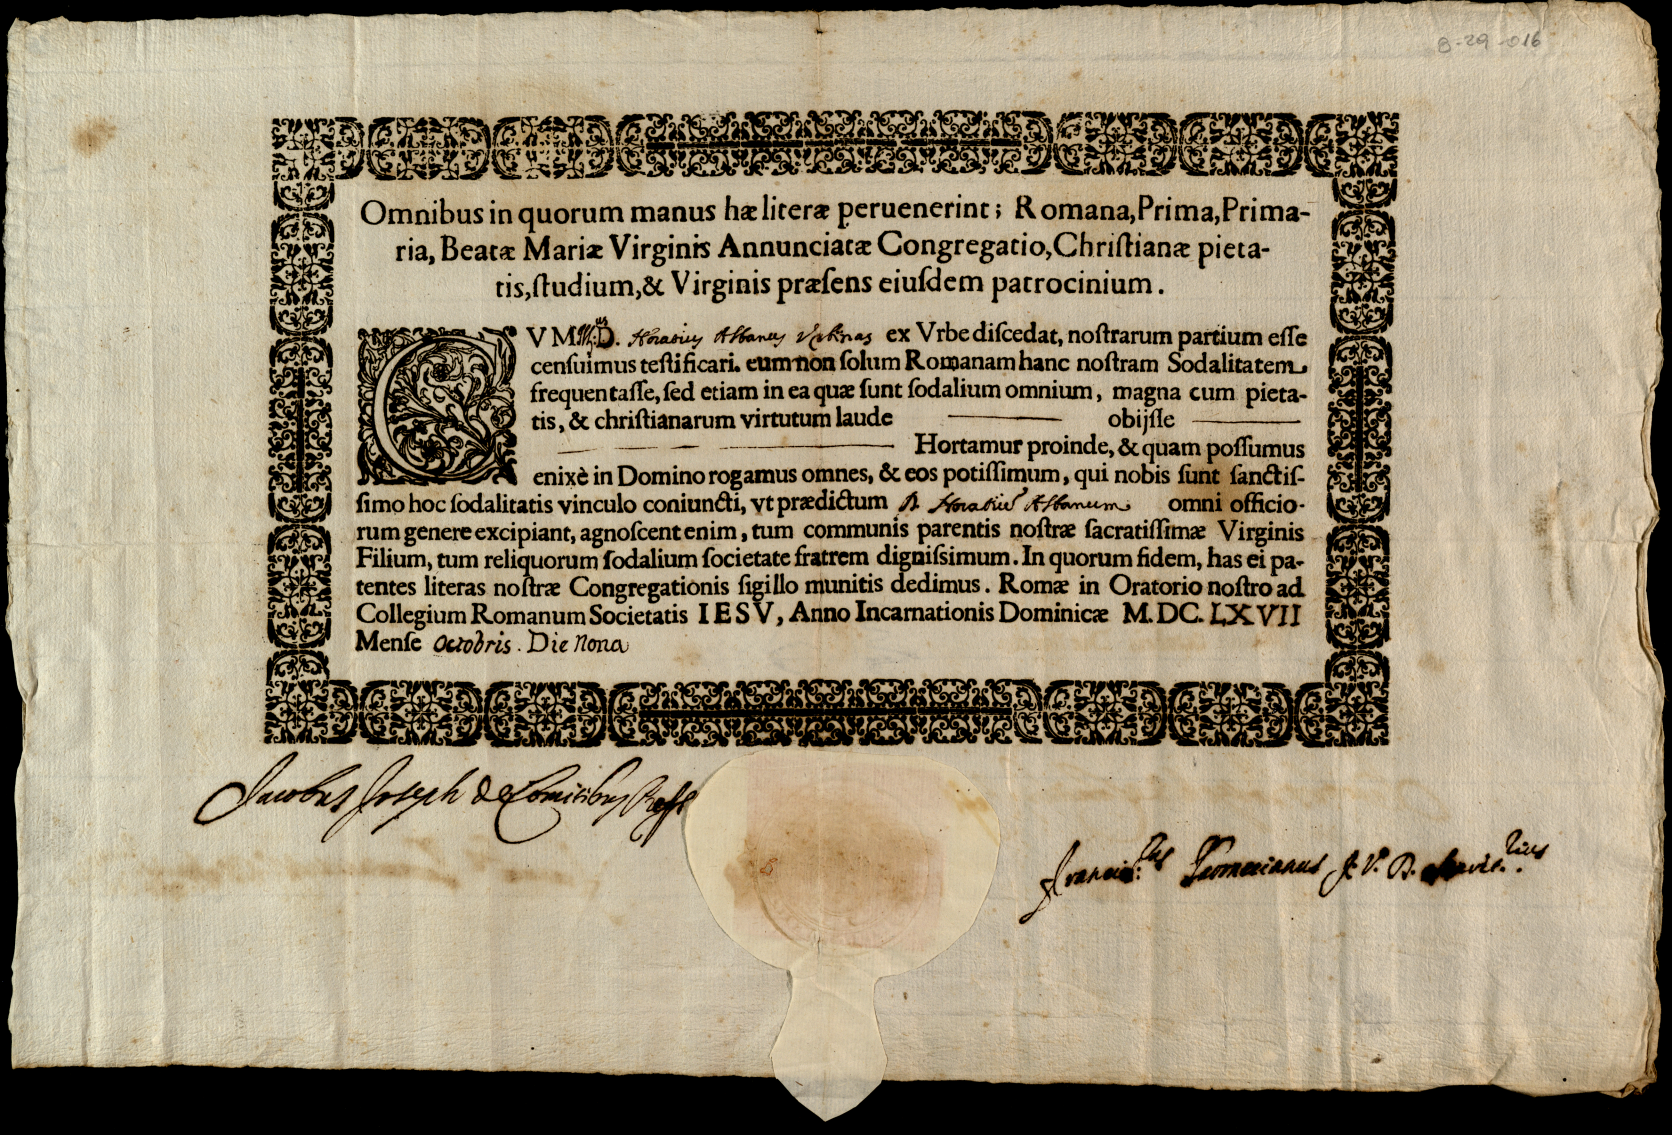 8-29-016
Omnibus in quorum manus hæ literæ peruenerint; Romana, Prima, Prima-
ria, Beatæ Mariæ Virginis Annunciatæ Congregatio, Chriſtianæ pieta-
tis, ſtudium, & Virginis præſens eiuſdem patrocinium.
CVM D. Horatius Albanus Urbinas ex Vrbe diſcedat, noſtrarum partium eſſe
cenſuimus teſtificari. eum non ſolum Romanam hanc noſtram Sodalitatem
frequentaſſe, ſed etiam in ea quæ ſunt ſodalium omnium, magna cum pieta-
tis, & chriſtianarum virtutum laude obijſſe
Hortamur proinde, & quam poſſumus
enixè in Domino rogamus omnes, & eos potiſſimum, qui nobis ſunt ſanctiſ-
ſimo hoc ſodalitatis vinculo coniuncti, vt prædictum D. Horatiũ Albanum omni officio-
rum genere excipiant, agnoſcent enim, tum communis parentis noſtræ ſacratiſſimæ Virginis
Filium, tum reliquorum ſodalium ſocietate fratrem digniſsimum. In quorum fidem, has ei pa-
tentes literas noſtræ Congregationis ſigillo munitis dedimus. Romæ in Oratorio noſtro ad
Collegium Romanum Societatis IESV, Anno Incarnationis Dominicæ M.DC.LXVII
Menſe Octobris. Die Nona
Jacobus Joseph de Comitibus Præf.
Francis.cus J. V. D.